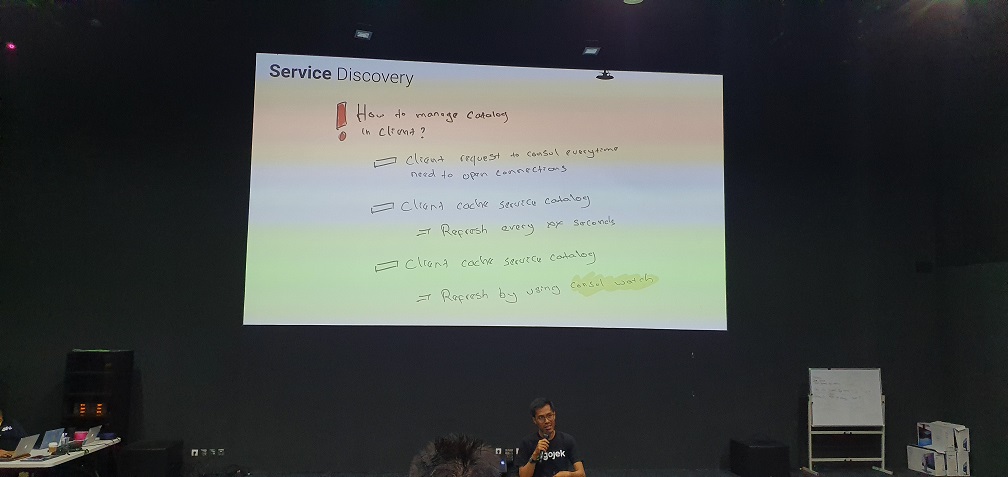 Service Discovery
How to manage catalog
in client?
Client request to consul everytime
need to open connections
Client cache service catalog
⇒ Refresh every xx seconds
Client cache service catalog
⇒ Refresh by using consul watch
gojek